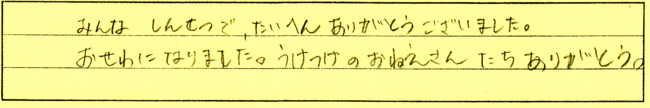 みんな しんせつで、たいへん ありがとうございました。
おせわになりました。うけつけのおねえさん たち ありがとう。